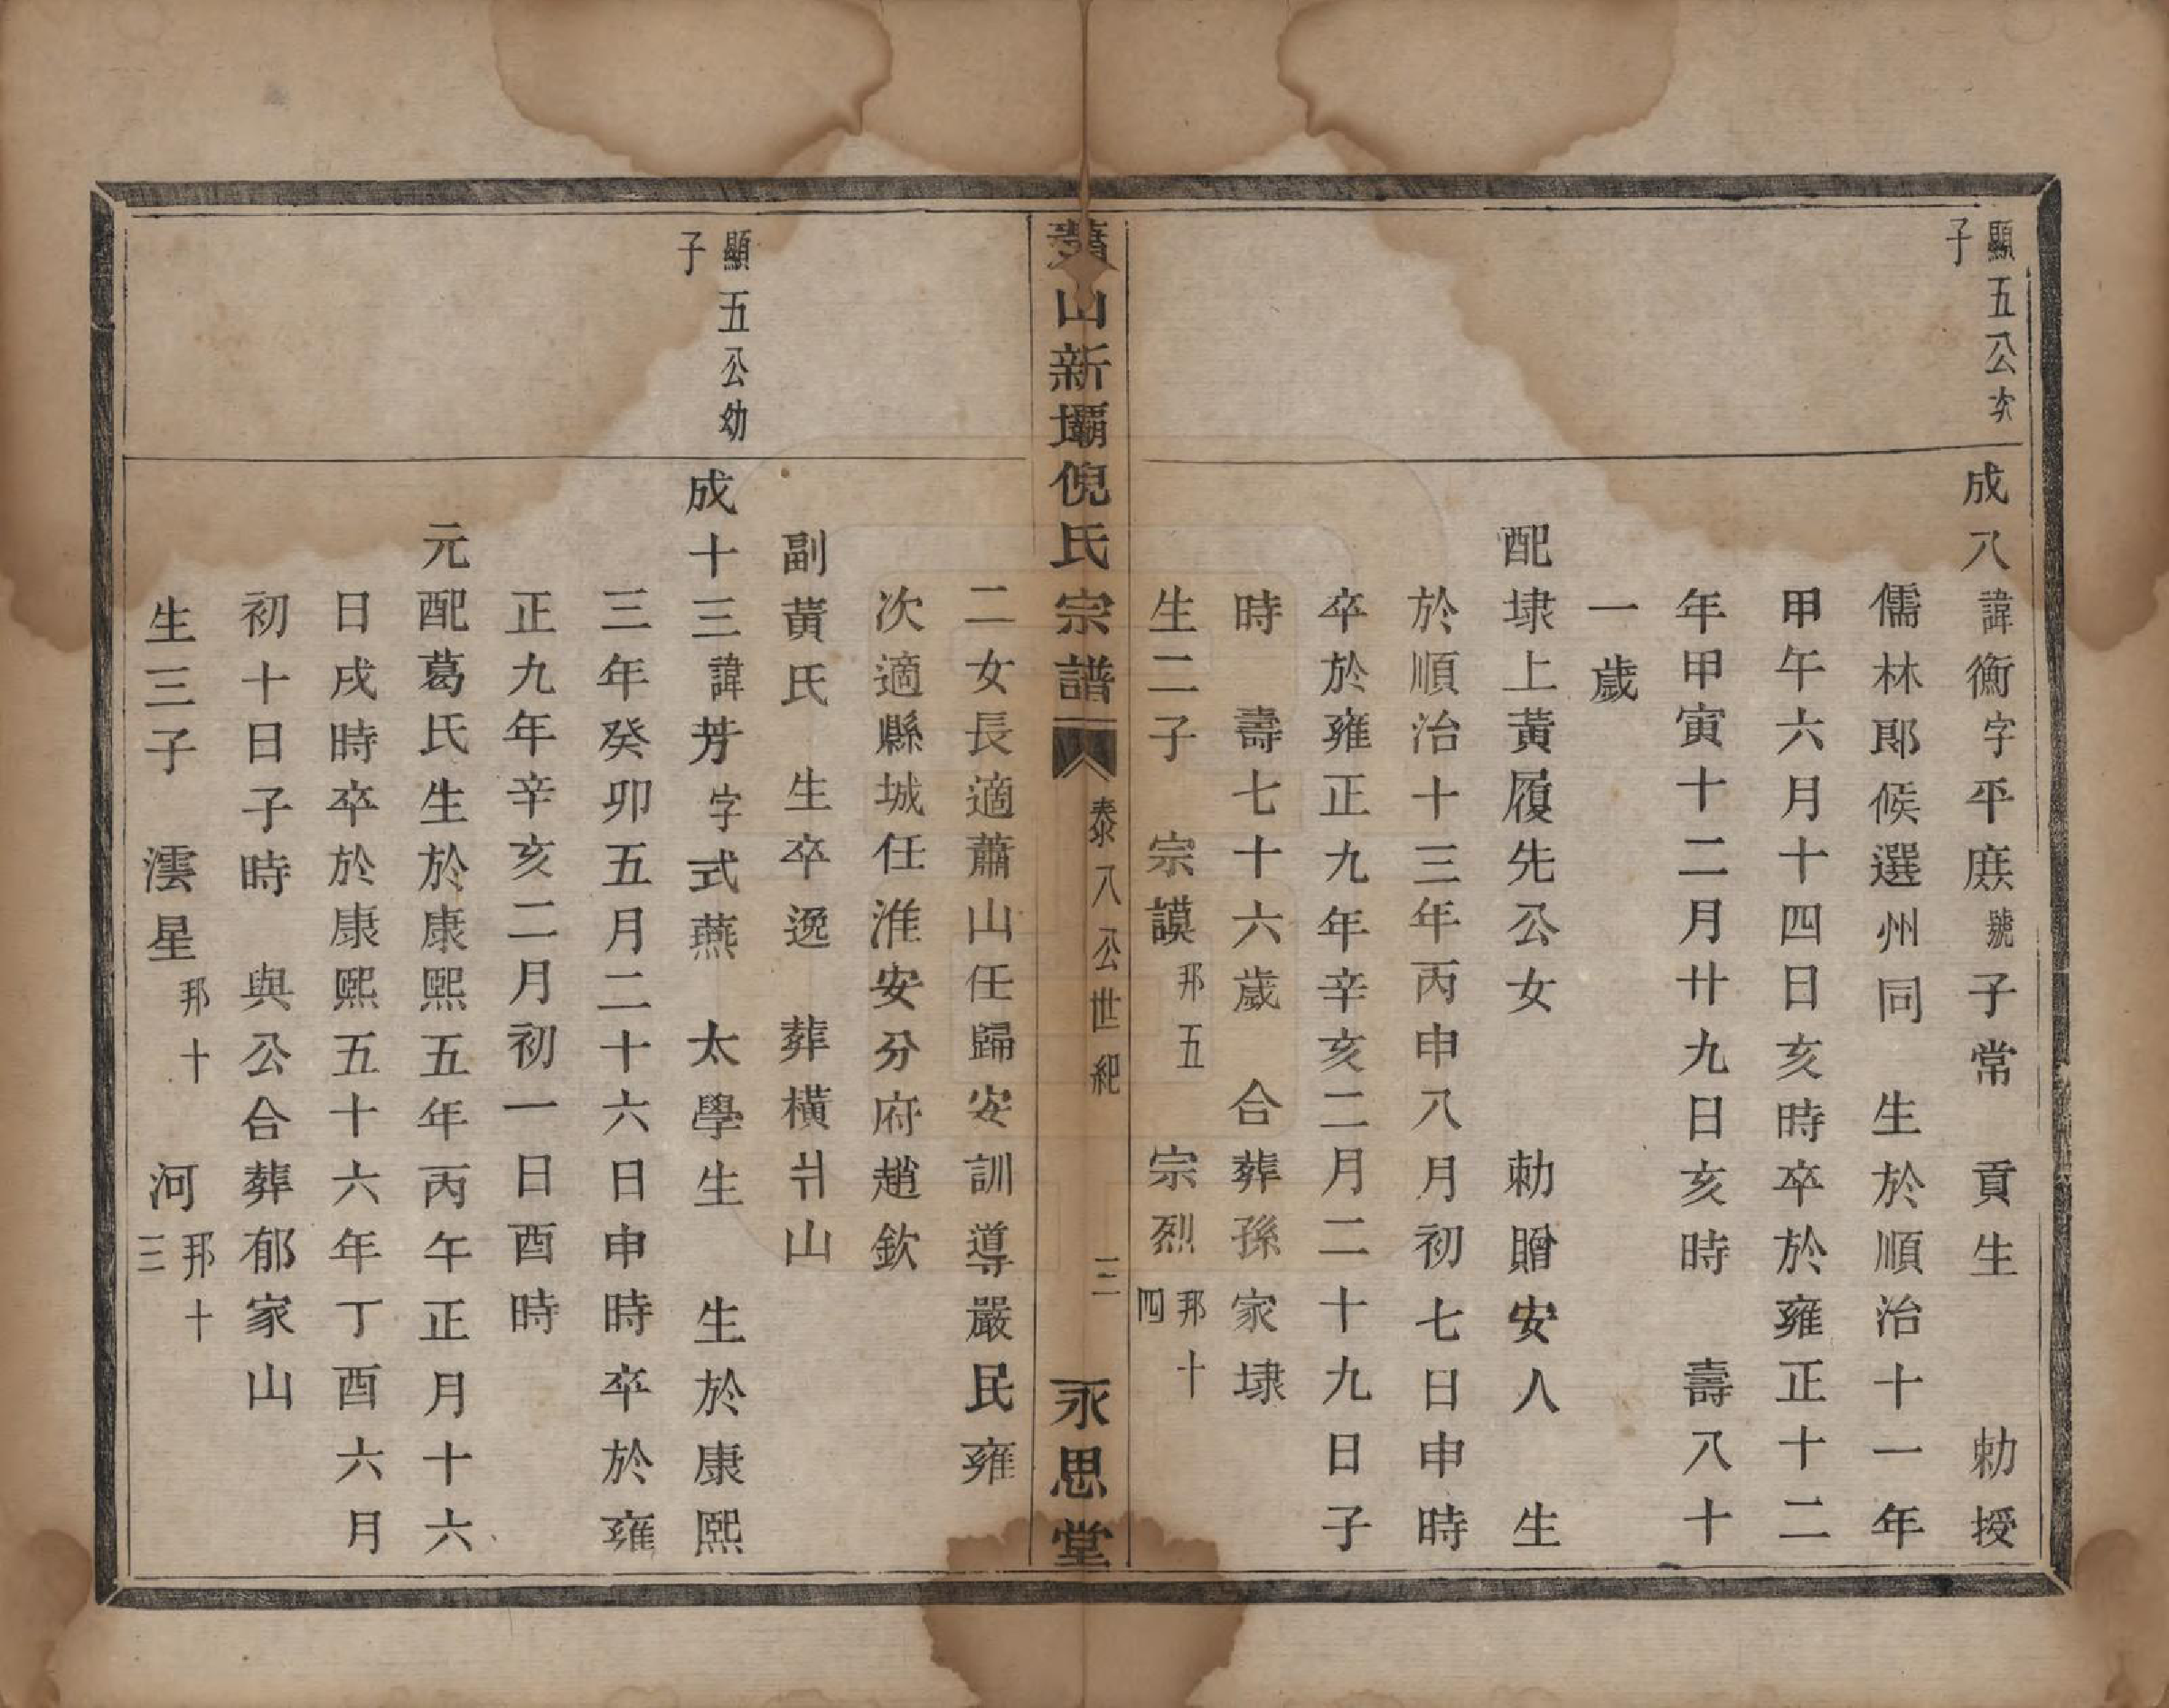 顯五公次
子
成八諱衡字平庶號子常　貢生　　勅授
儒林郎候選州同　生於順治十一年
甲午六月十四日亥時卒於雍正十二
年甲寅十二月廿九日亥時　壽八十
一歲
配埭上黃履先公女　　勅贈安人　生
於順治十三年丙申八月初七日申時
卒於雍正九年辛亥二月二十九日子
時　壽七十六歲　合葬孫家埭
生二子　宗謨邦五　宗烈邦十四
蕭山新壩倪氏宗譜　泰八公世紀　三　永思堂
二女長適蕭山任歸安訓導嚴民雍
次適縣城任淮安分府趙欽
副黃氏　生卒逸　葬橫爿山
顯五公幼
子
成十三諱芳字式燕　太學生　生於康熙
三年癸卯五月二十六日申時卒於雍
正九年辛亥二月初一日酉時
元配葛氏生於康熙五年丙午正月十六
日戌時卒於康熙五十六年丁酉六月
初十日子時　與公合葬郁家山
生三子　澐星邦十　河邦十三